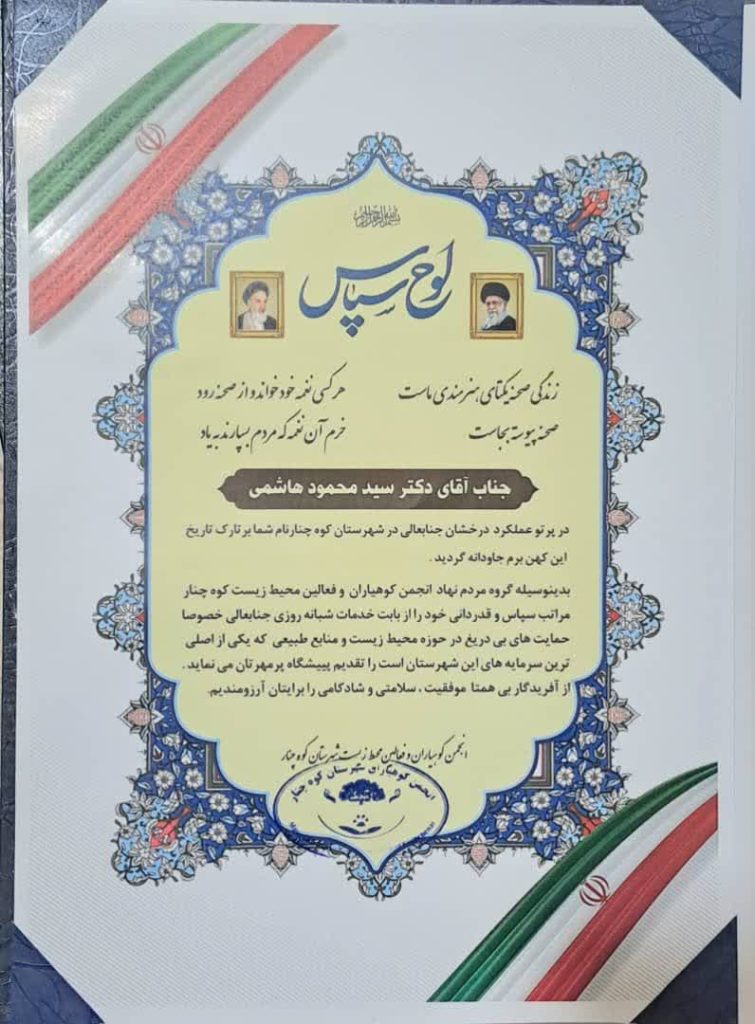 بسم الله الرحمن الرحیم
لوح سپاس
زندگی صحنه یکتای هنرمندی ماست هر کسی نغمه خود خواند و از صحنه رود
صحنه پیوسته بجاست خرم آن نغمه که مردم بسپارند به یاد
جناب آقای دکتر سید محمود هاشمی
در پرتو عملکرد درخشان جنابعالی در شهرستان کوه چنار نام شما بر تارک تاریخ
این کهن برم جاودانه گردید .
بدینوسیله گروه مردم نهاد انجمن کوهیاران و فعالین محیط زیست کوه چنار
مراتب سپاس و قدردانی خود را از بابت خدمات شبانه روزی جنابعالی خصوصا
حمایت های بی دریغ در حوزه محیط زیست و منابع طبیعی که یکی از اصلی
ترین سرمایه های این شهرستان است را تقدیم پییشگاه پرمهرتان می نماید .
از آفریدگار بی همتا موفقیت ، سلامتی و شادکامی را برایتان آرزومندیم.
انجمن کوهیاران و فعالین محیط زیست شهرستان کوه چنار
انجمن کوهیاران شهرستان کوه چنار